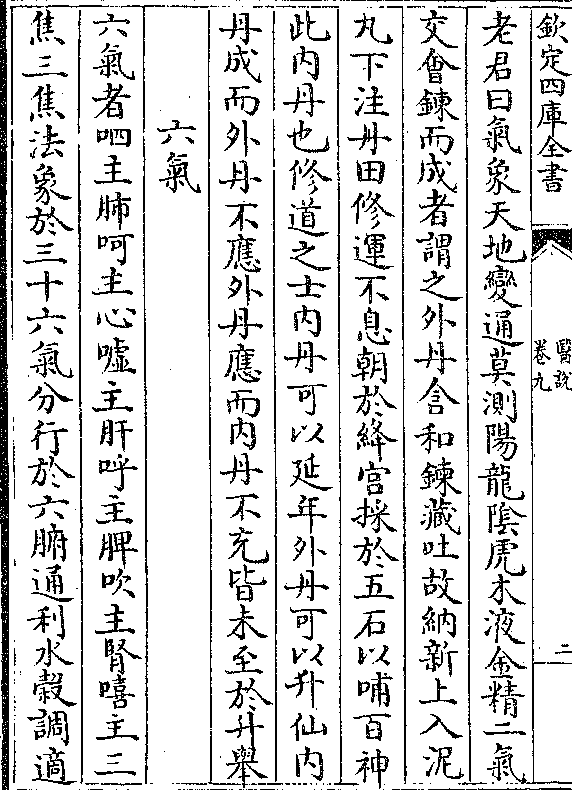 欽定四庫全書
醫說
卷九
二
老君曰氣象天地變通莫測陽龍陰虎木液金精二氣
交會鍊而成者謂之外丹含和鍊藏吐故納新上入泥
丸下注丹田修運不息朝於絳宮採於五石以哺百神
此内丹也修道之士内丹可以延年外丹可以升仙内
丹成而外丹不應外丹應而内丹不充皆未至於升舉
六氣
六氣者呬主肺呵主心噓主肝呼主脾吹主腎嘻主三
焦三焦法象於三十六氣分行於六腑通利水榖調適